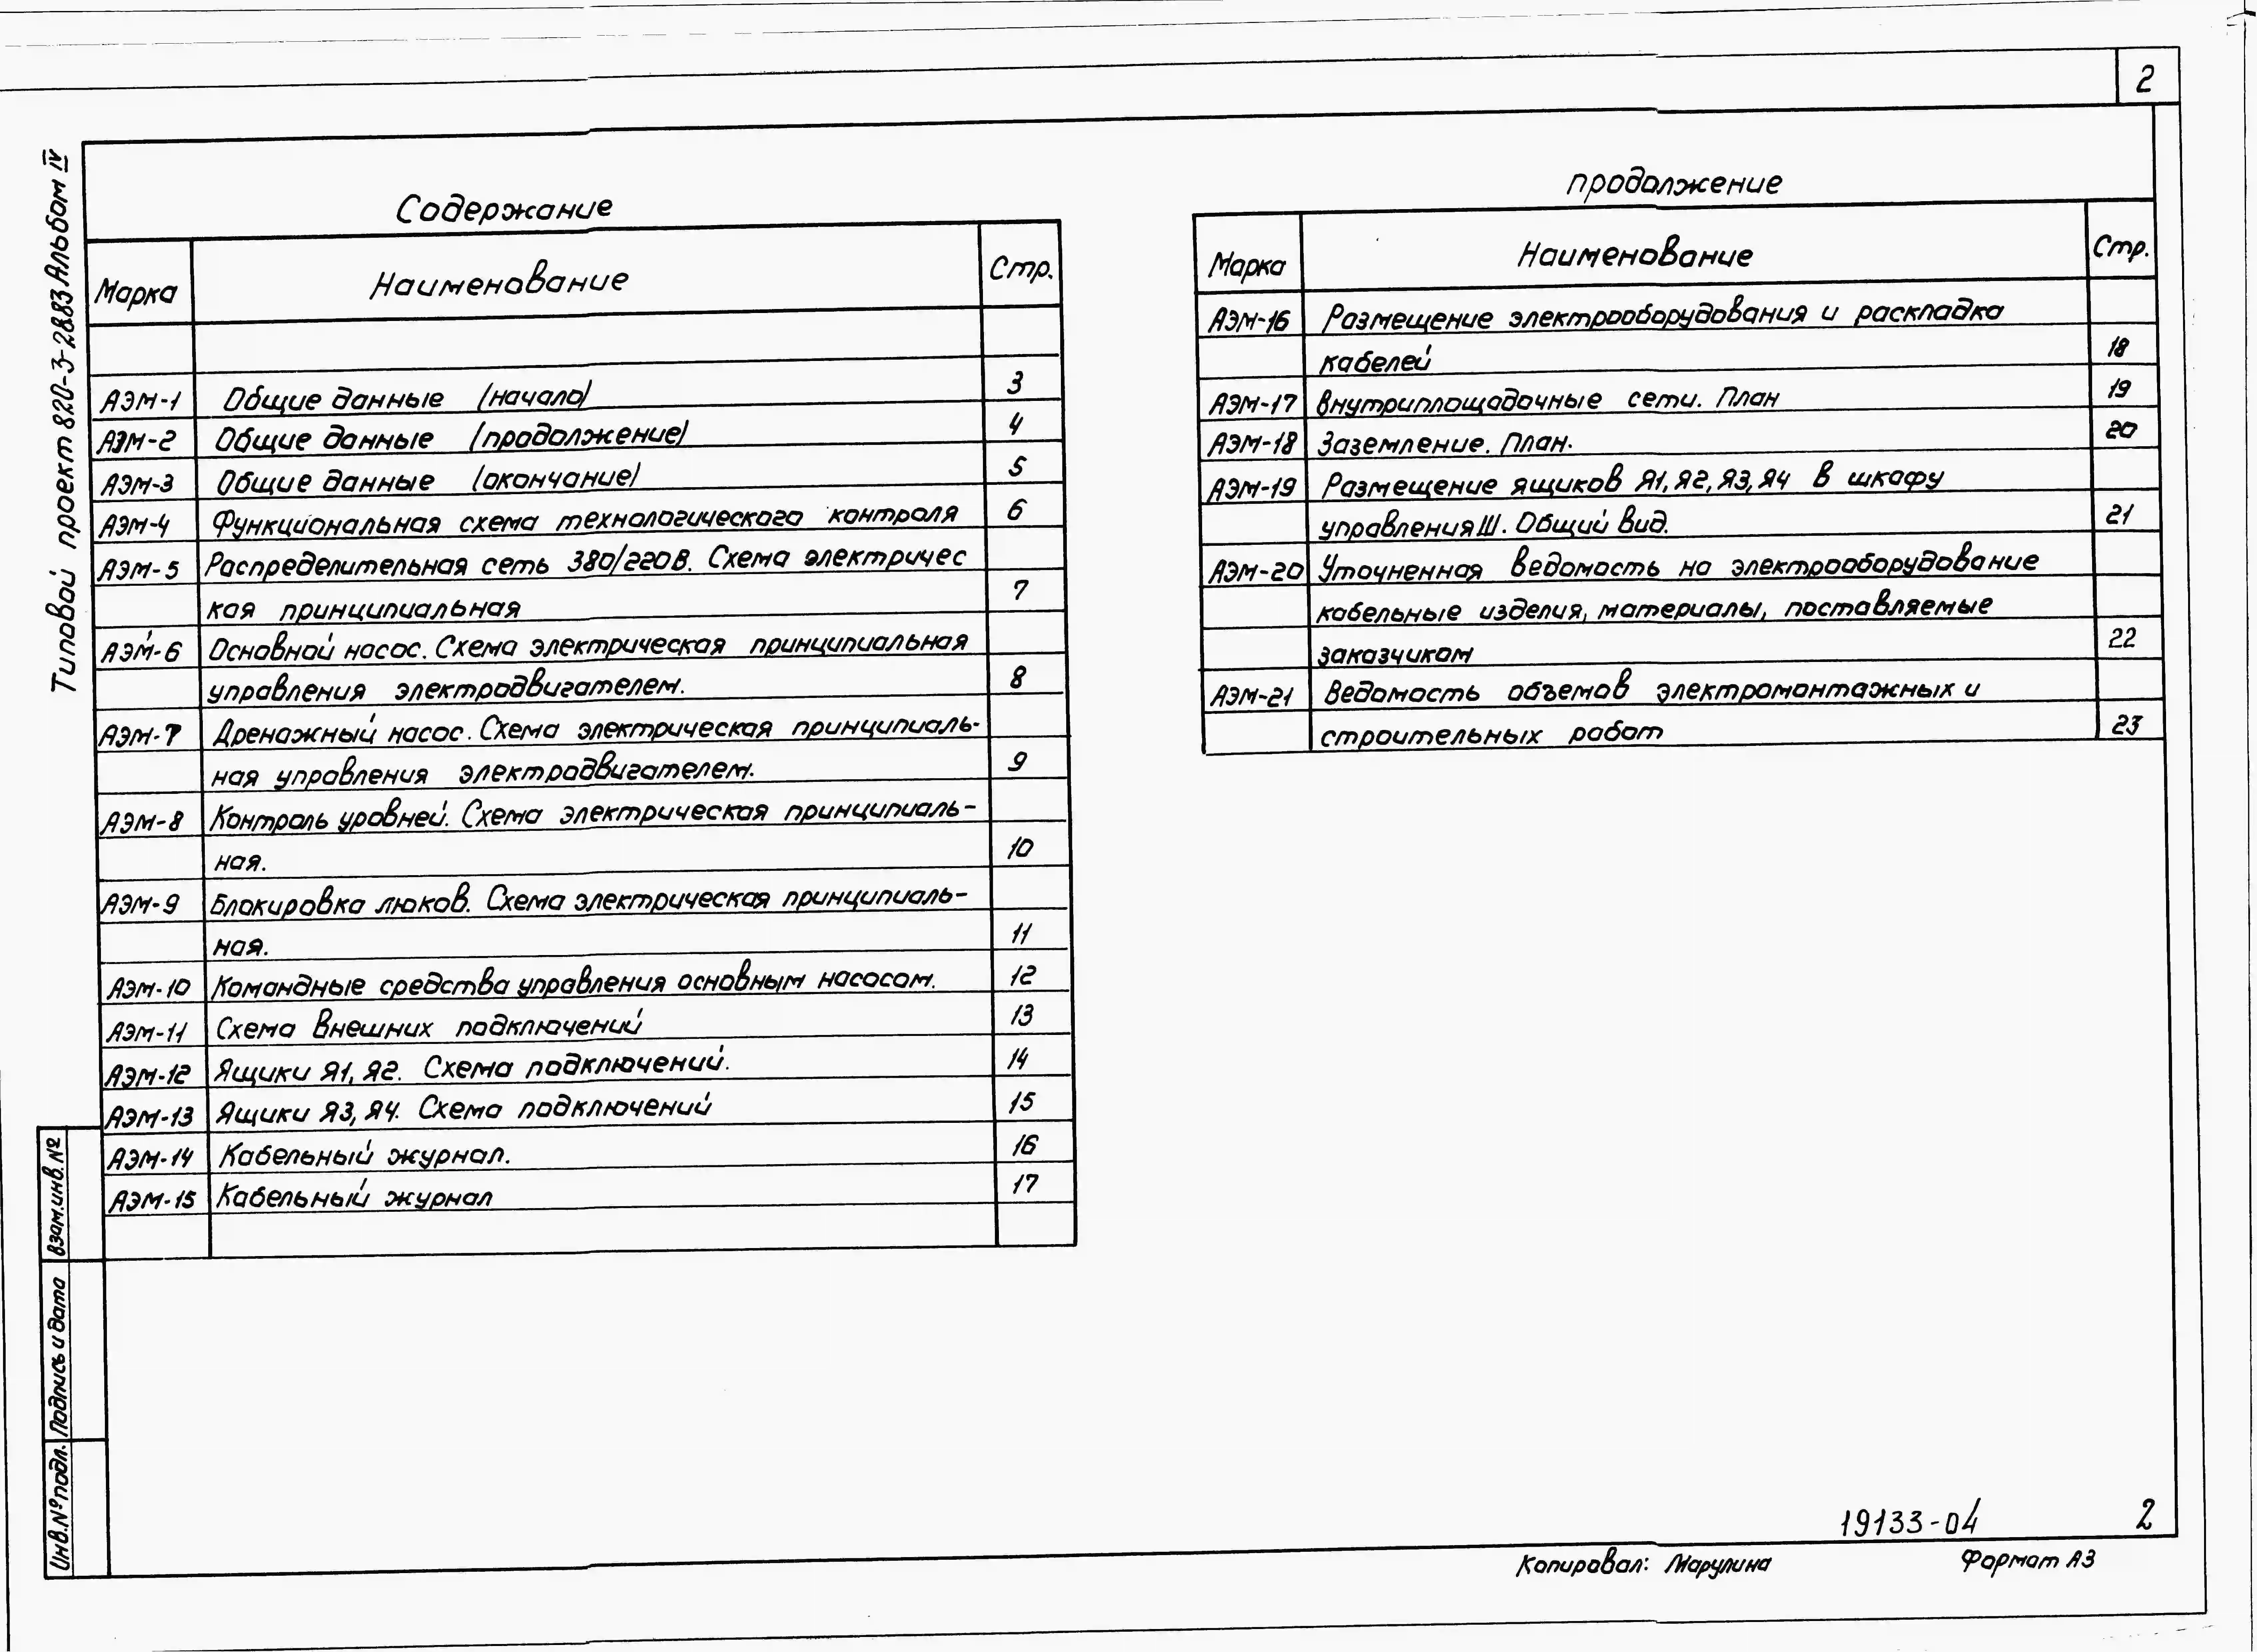 2
Типовой проект 820-3-28.83 Альбом IV
Содержание
Марка Наименование Стр.
АЭМ-1 Общие данные (начало) 3
АЭМ-2 Общие данные (продолжение) 4
АЭМ-3 Общие данные (окончание) 5
АЭМ-4 Функциональная схема технологического контроля 6
АЭМ-5 Распределительная сеть 380/220В. Схема электричес
кая принципиальная 7
АЭМ-6 Основной насос. Схема электрическая принципиальная
управления электродвигателем. 8
АЭМ-7 Дренажный насос. Схема электрическая принципиаль-
ная управления электродвигателем. 9
АЭМ-8 Контроль уровней. Схема электрическая принципиаль-
ная. 10
АЭМ-9 Блокировка люков. Схема электрическая принципиаль-
ная. 11
АЭМ-10 Командные средства управления основным насосом. 12
АЭМ-11 Схема внешних подключений 13
АЭМ-12 Ящики Я1, Я2. Схема подключений. 14
АЭМ-13 Ящики Я3, Я4. Схема подключений 15
АЭМ-14 Кабельный журнал. 16
АЭМ-15 Кабельный журнал 17
продолжение
Марка Наименование Стр.
АЭМ-16 Размещение электрооборудования и раскладка
кабелей 18
АЭМ-17 Внутриплощадочные сети. План 19
АЭМ-18 Заземление. План. 20
АЭМ-19 Размещение ящиков Я1, Я2, Я3, Я4 в шкафу
управления Ш. Общий вид. 21
АЭМ-20 Уточненная ведомость на электрооборудование
кабельные изделия, материалы, поставляемые
заказчиком 22
АЭМ-21 Ведомость объемов электромонтажных и
строительных работ 23
Взам.инв.№
Подпись и дата
Инв.№ подл.
19133-04 2
Копировал: Марулина Формат А3